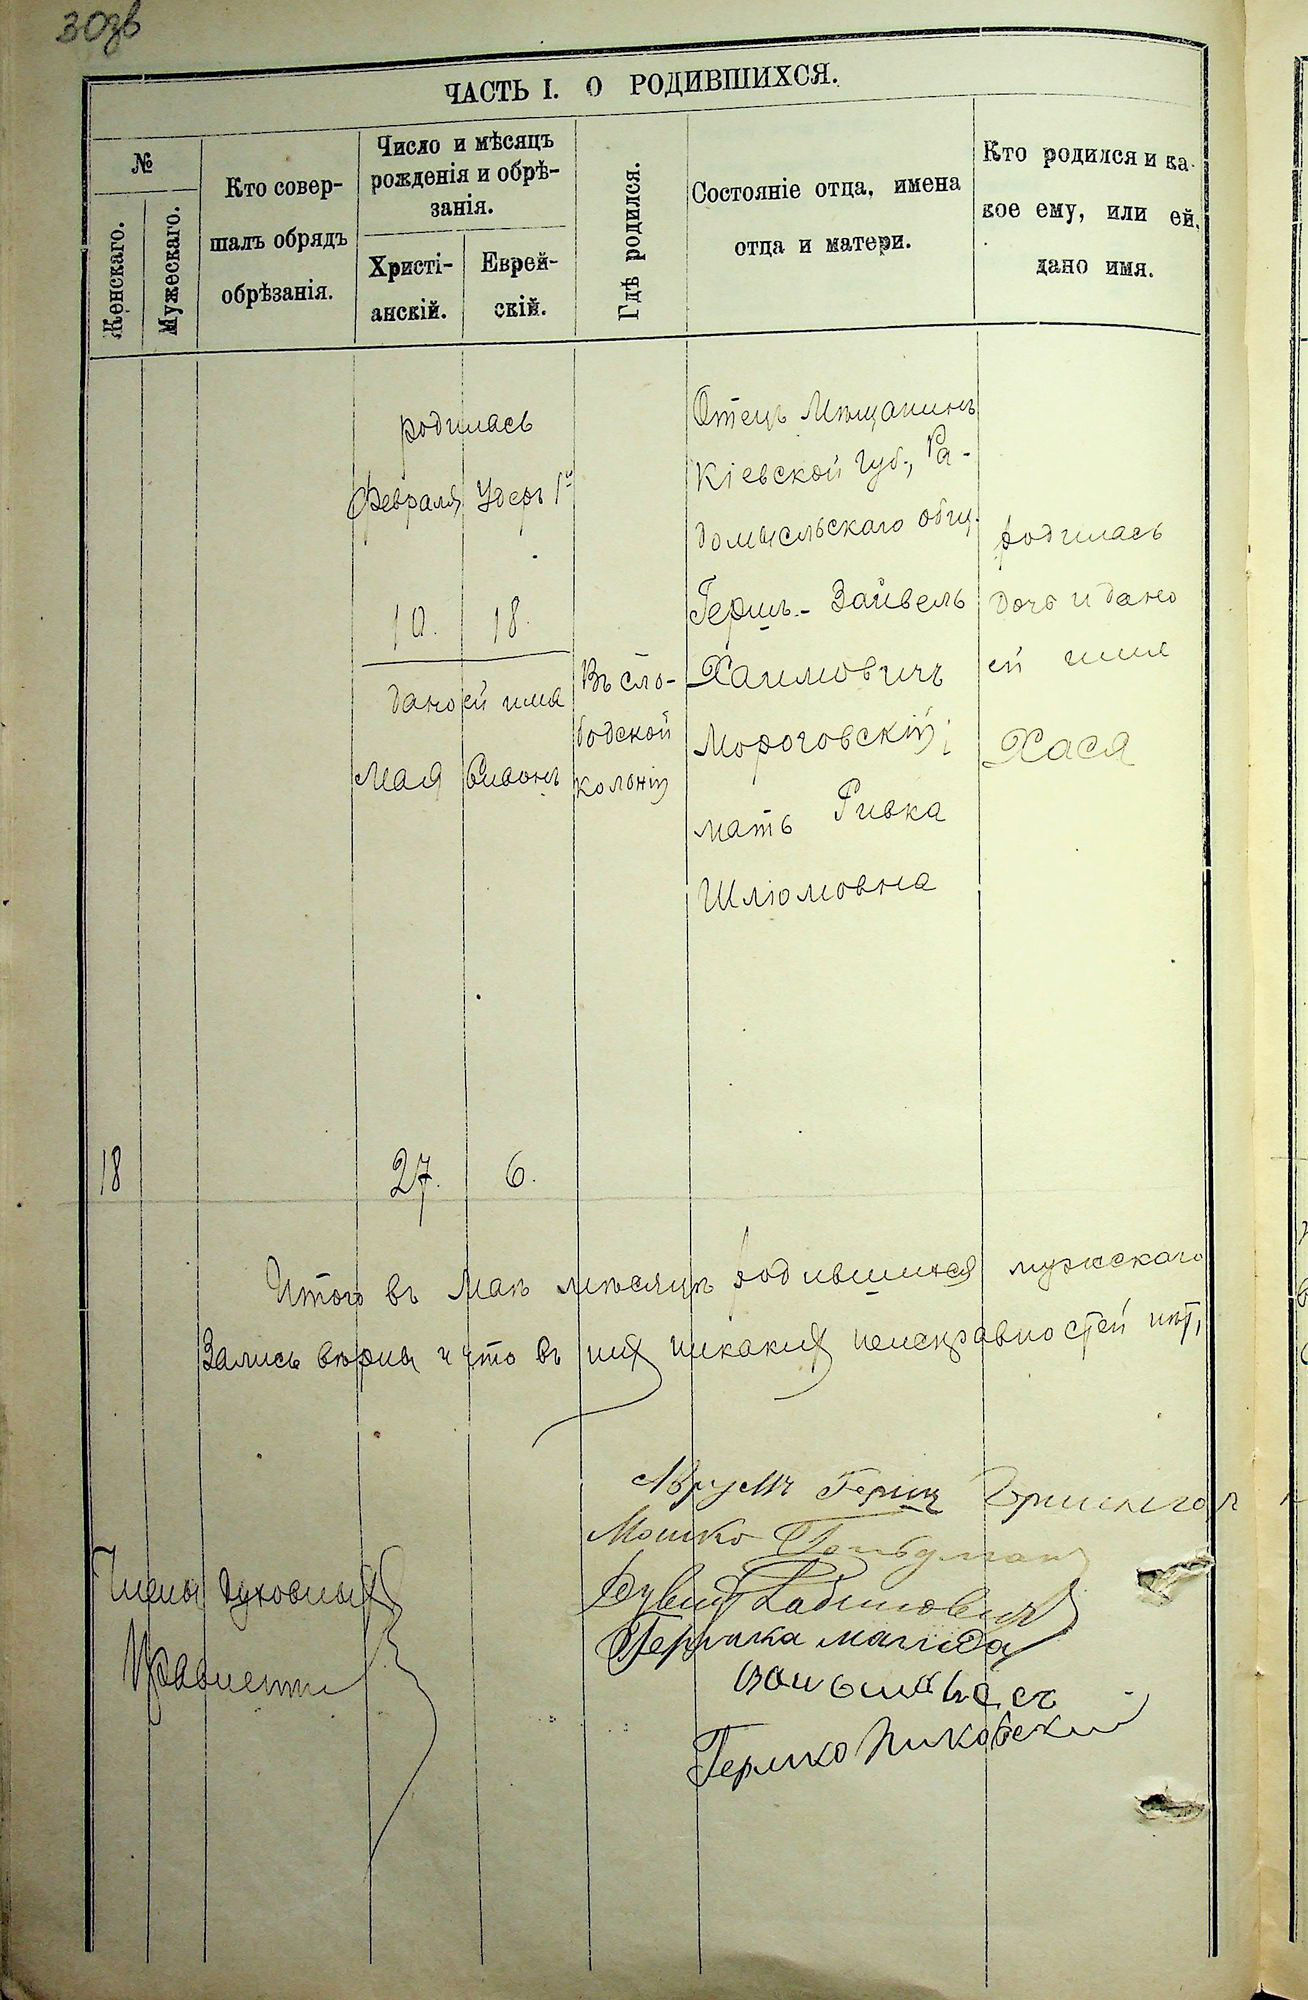 30зв
ЧАСТЬ I. О РОДИВШИХСЯ.
№
Женскаго.
Мужескаго.
Кто совер-
шалъ обрядъ
обрѣзанія.
Число и мѣсяцъ
рожденія и обрѣ-
занія.
Христі-
анскій.
Еврей-
скій.
Гдѣ родился.
Состояніе отца, имена
отца и матери.
Кто родился и ка-
кое ему, или ей,
дано имя.
18
родилась
Февраля Удеръ 1й
10. 18.
дано ей имя
Мая Сивонъ
27. 6.
Въ сло-
бодской
колоніи
Отецъ Мѣщанинъ
Кіевской губ., Ра-
домысльскаго общ.
Гершъ-Зайвель
Хаимовичъ
Мороговскій;
мать Ривка
Шлюмовна
родилась
дочь и дано
ей имя
Хася
Итого въ Маѣ мѣсяцѣ родившихся мужскаго
Запись вѣрна и что въ ней никакихъ неисправностей нѣт,
Члены Духовныхъ
Правленій
Аврумъ Гершъ
Мошко Гольдман
Рабинович
Гершка
Гершко